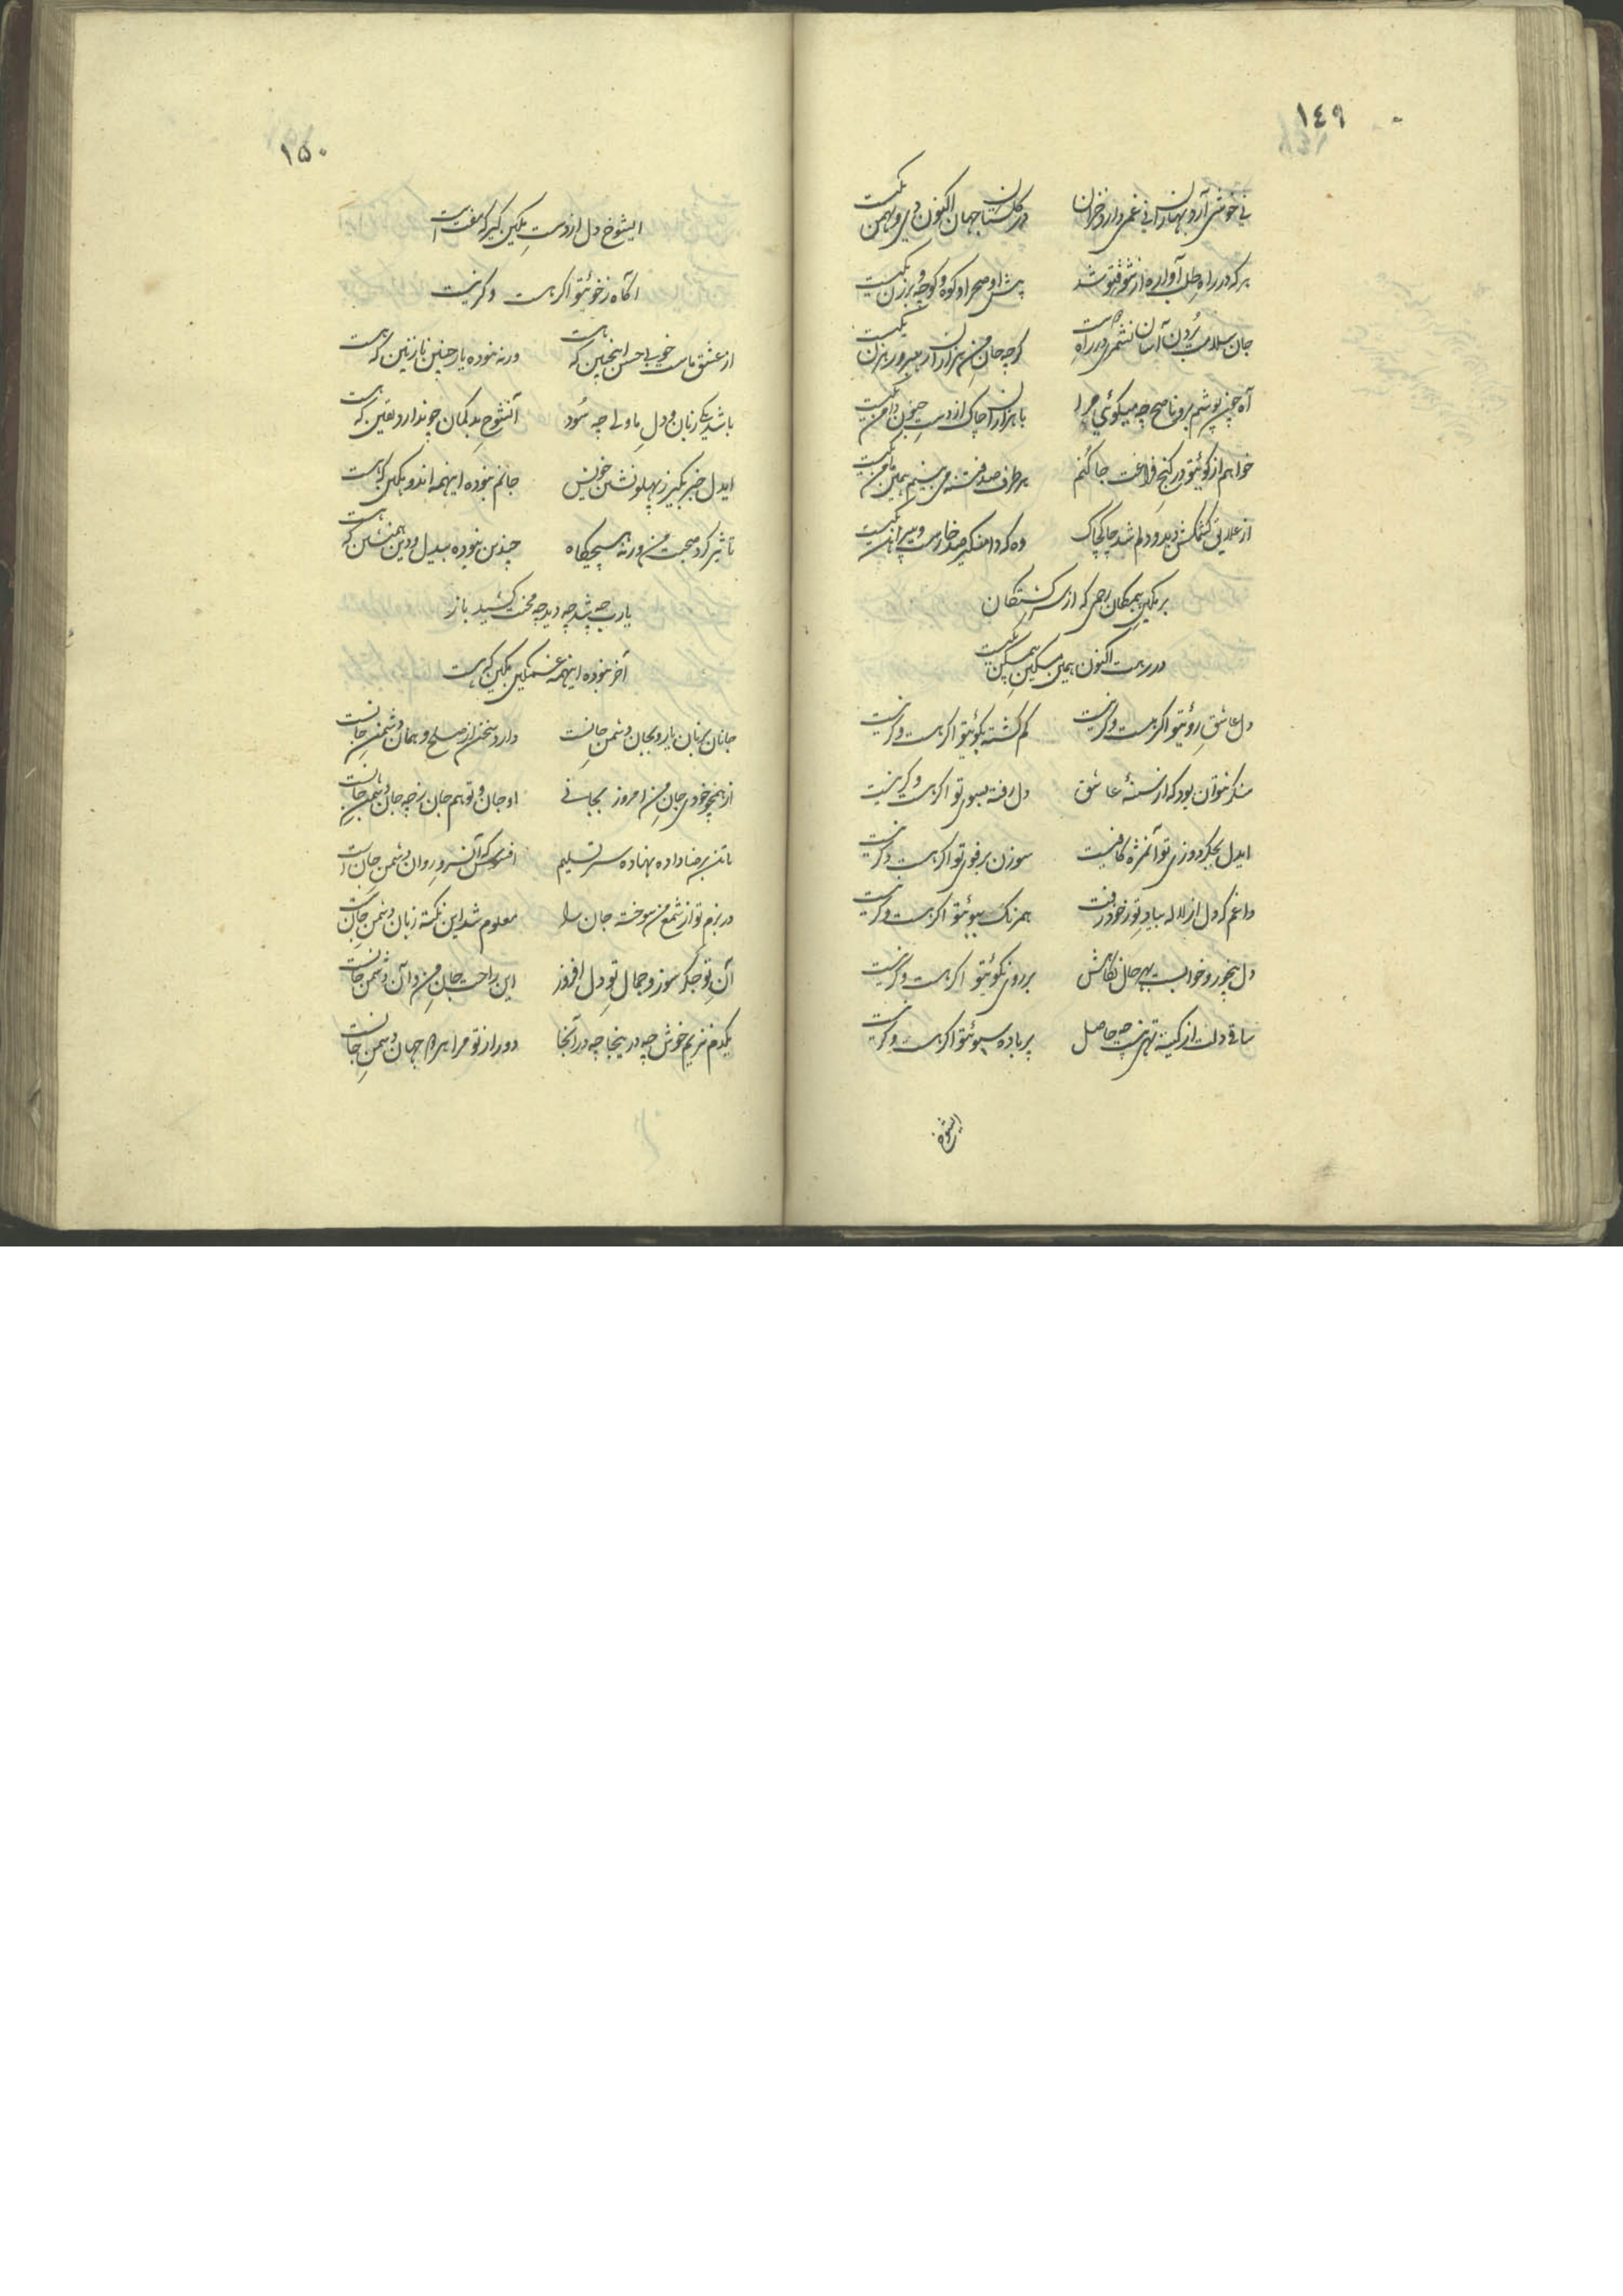 ١٤٩
نی خوشی آرد بهارانش نی غمی دارد خزان
در گلستان جهان اکنون دی و بهمن یکیست
هرکه در راه طلب آواره از شوق تو شد
پیش او صحرا و کوه و کوچه و برزن یکیست
جان سلامت بردن آسان نشمری در راه
گرچه جان من هزاران رهبر و رهزن یکیست
آه چون پوشم برو ناصح چه میگوئی مرا
با هزاران چاک از دست جنون دامن یکیست
خواهم از کوی تو در کنج فراغت جا کنم
هر طرف صد فتنه می بینم همین
از علایق کشمکش دید و دلم شد چاک چاک
وه که دامنگیر صد خارست و پیراهن یکیست
بر نگین همگنان رحمی که از سرگشتگان
در رهت اکنون همین مسکین یکیست
دل عاشق روئیتو اگر هست وگر نیست
گم گشته بکوئیتو اگر هست وگر نیست
منکر نتوان بود که از سینهٔ عاشق
دل رفته بسوی تو اگر هست وگر نیست
ایدل بجگر دوزی تو آن مژه کافیست
سوزن برفوی تو اگر هست وگر نیست
داغم که دل از لاله بیاد تو ز خود رفت
همرنگ ببوئیتو اگر هست وگر نیست
دل بیخود و خوابست بهر حال نگاهش
بر روی نکوئیتو اگر هست وگر نیست
ساقی دلت از کینه تهی نیست چه حاصل
پر باده سبوئیتو اگر هست وگر نیست
ایشوخ
١٥٠
ایشوخ دل از دست نگین گیر که مفت است
آگاه ز خوئیتو اگر هست وگر نیست
از عشق ماست خوبی حسن اینچنین که هست
ورنه نبوده یار چنین نازنین که هست
باشد یکی زبان و دل ما ولی چه سود
آنشوخ بدگمان چو ندارد یقین که هست
ایدل خبر بگیر ز پهلونشین خویش
جانم نبوده اینهمه اندوهگین که هست
تاثیر کرد صحبت من ورنه هیچگاه
چندین نبوده بیدل و دین همنشین که هست
یارب چه شد چه دید چه محنت کشید باز
آخر نبوده اینهمه غمگین نگین که هست
جانان بزبان یار و بجان دشمن جانست
دارد سخن از صلح و همان دشمن جانست
از همچو خودی جان من امروز بجانی
او جان و تو هم جان ز چه جان دشمن جانست
ماتن برضا داده نهاده سر تسلیم
افسوس که آن سرو روان دشمن جان است
در بزم تو از شمع من سوخته جان را
معلوم شد این نکته زبان دشمن جانست
آن تو جگر سوز و جمال تو دل افروز
این راحت جان من و آن دشمن جانست
یکدم نزیم خوش چه در اینجا چه در آنجا
دور از تو مرا هر دو جهان دشمن جانست